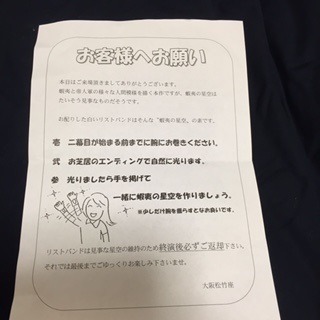 お客様へお願い
本日はご来場頂きましてありがとうございます。
蝦夷と帝人家の様々な人間模様を描く本作ですが、蝦夷の星空は
たいそう見事なものだそうです。
お配りした白いリストバンドはそんな“蝦夷の星空”の素です。
壱 二幕目が始まる前までに腕にお巻きください。
弐 お芝居のエンディングで自然に光ります。
参 光りましたら手を掲げて
一緒に蝦夷の星空を作りましょう。
※少しだけ腕を揺らすとなお良いです。
リストバンドは見事な星空の維持のため終演後必ずご返却下さい。
それでは最後までごゆっくりお楽しみ下さいませ。
大阪松竹座